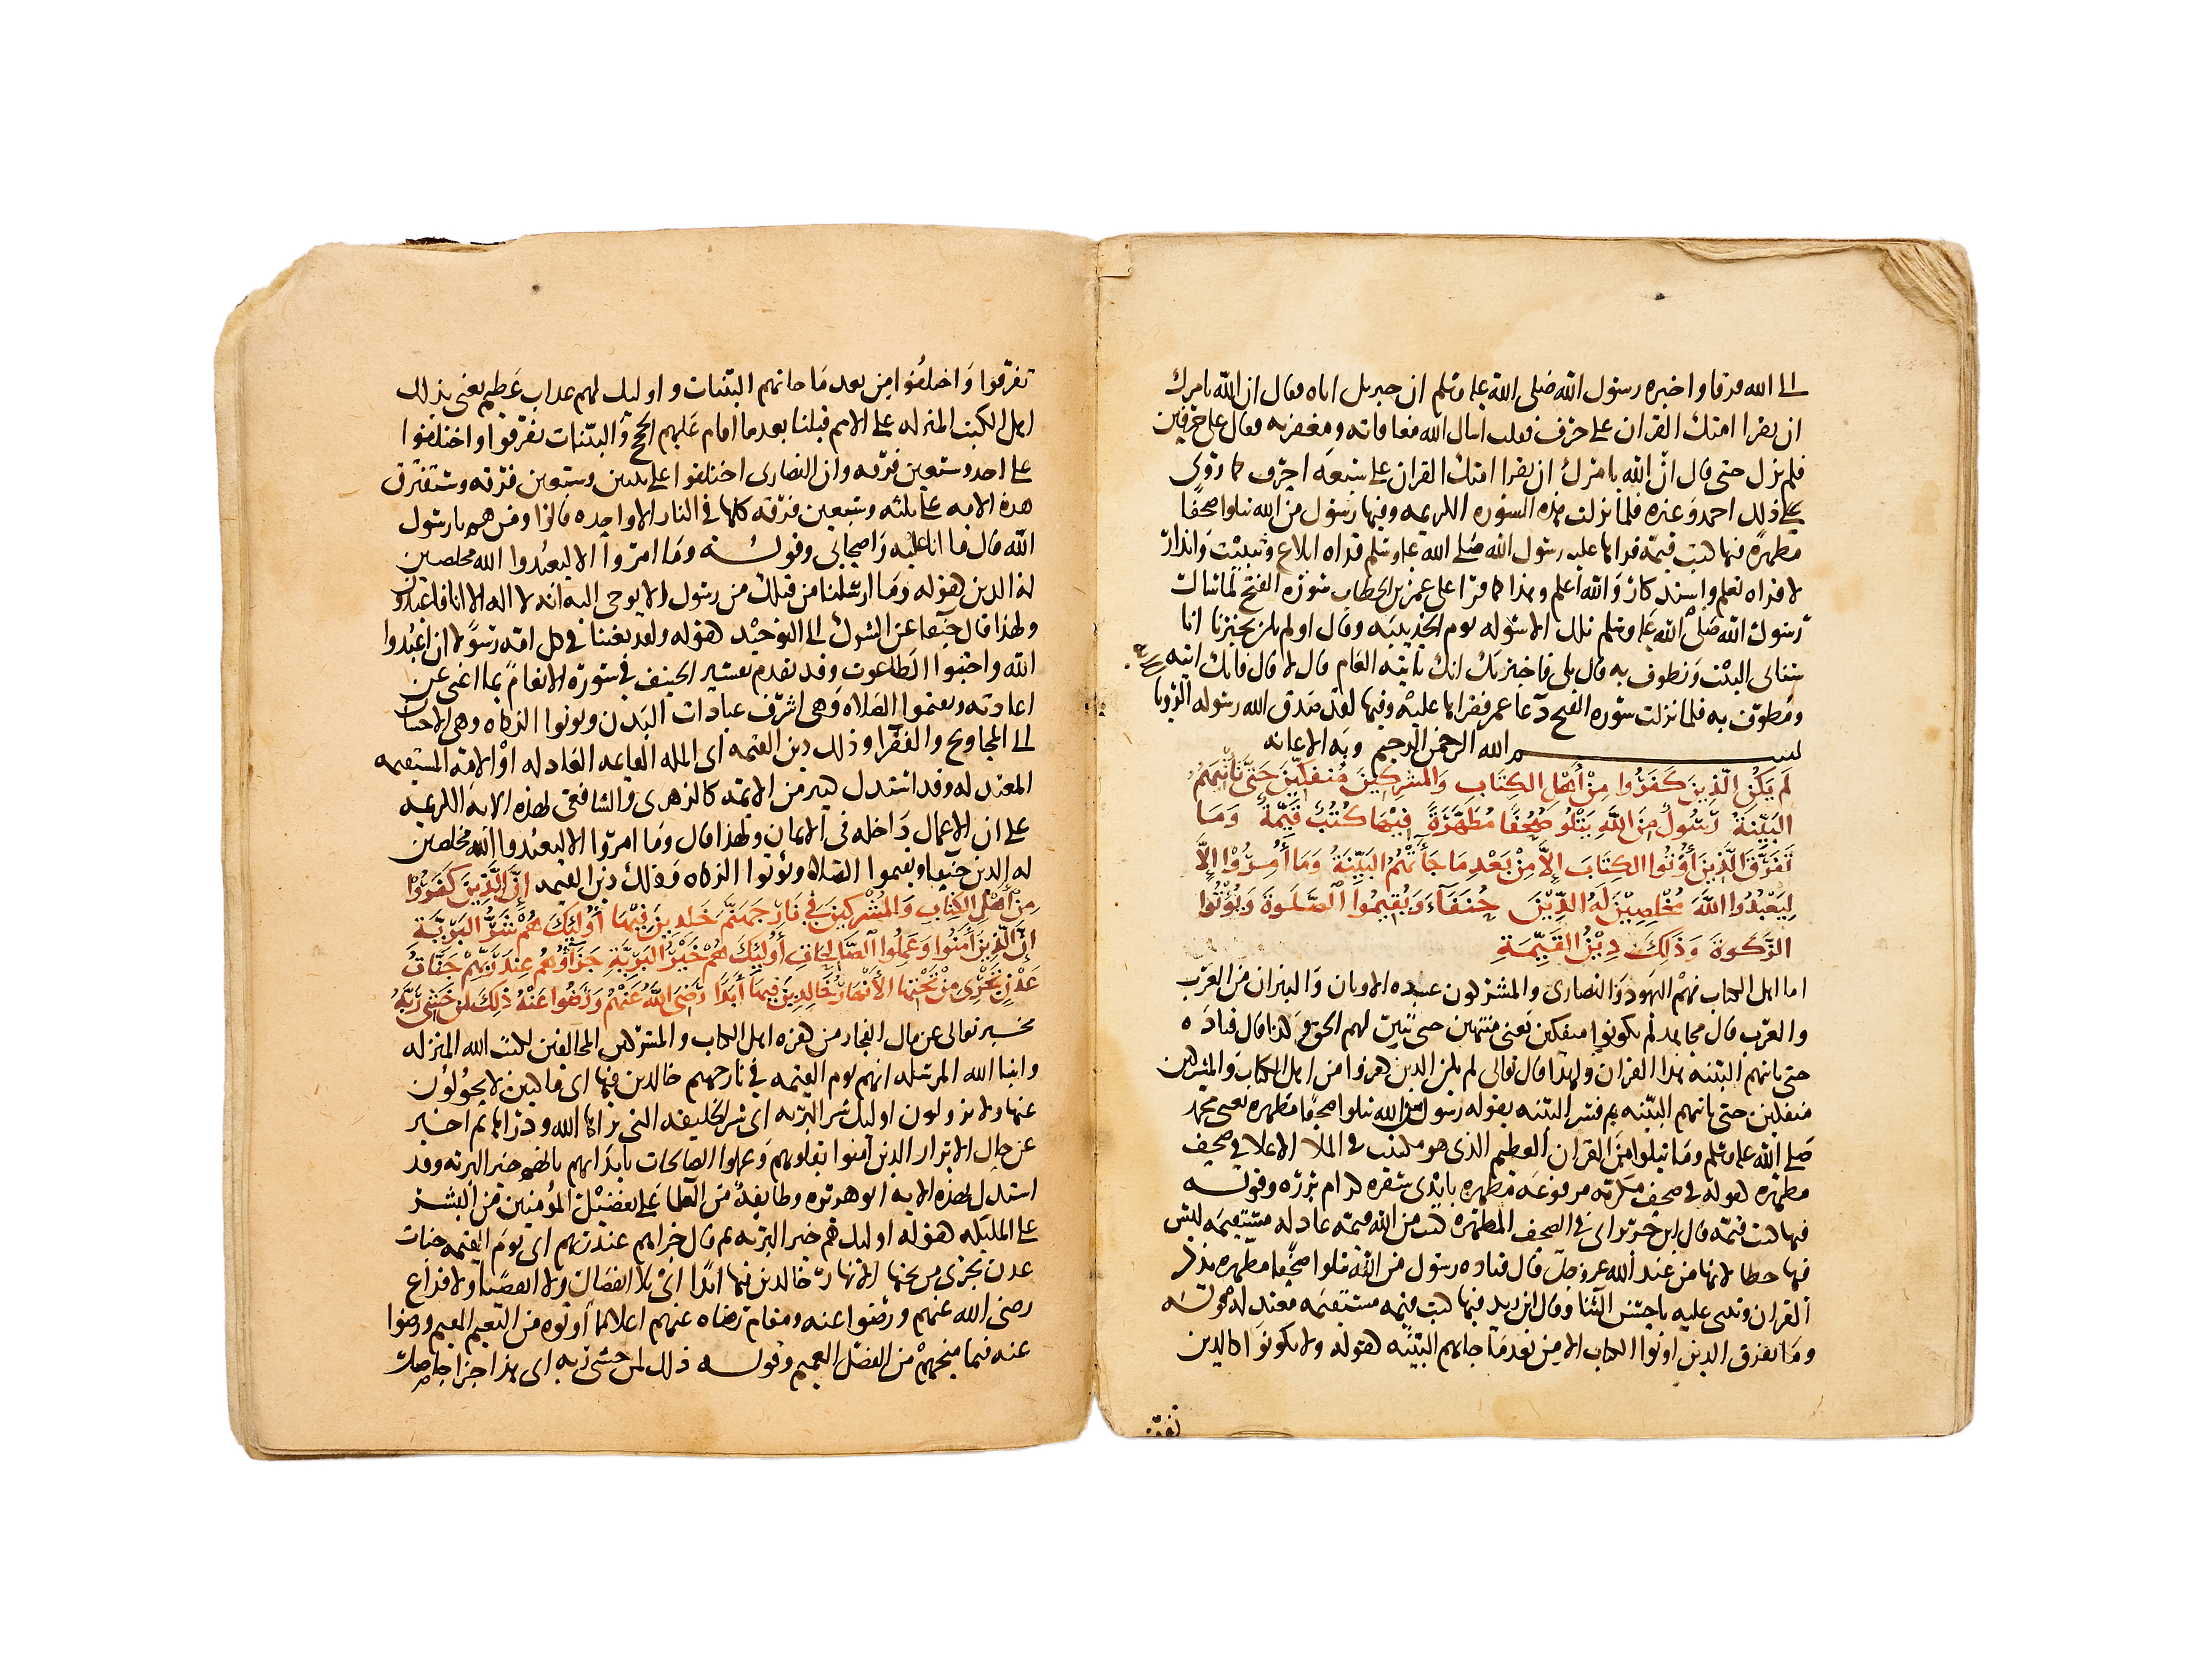 الى الله فرقا واخبره رسول الله صلى الله عليه وسلم ان جبريل اتاه فقال ان الله يامرك
ان يقرا امتك القران على حرف فقلت اسال الله معافاته ومغفرته فقال على حرفين
فلم يزل حتى قال ان الله يامرك ان يقرا امتك القران على سبعة احرف كما روى
ذلك احمد وغيره فلما نزلت هذه السورة الكريمه وفيها رسول من الله يتلوا صحفا
مطهرة فيها كتب قيمة قراها عليه رسول الله صلى الله عليه وسلم قراة ابلاغ وتثبيت وانذار
لا قراه تعلم واستذكار والله اعلم وهذا كما قرا على عمر بن الخطاب سورة الفتح لما سال
رسول الله صلى الله عليه وسلم تلك الاسوله يوم الحديبيه وقال اولم تكن تخبرنا انا
سناتي البيت ونطوف به قال بلى فاخبرتك انك تاتيه العام قال لا قال فانك اتيه
ومطوف به فلما نزلت سورة الفتح دعا عمر فقراها عليه وفيها لقد صدق الله رسوله الرويا
بسم الله الرحمن الرحيم وبه الاعانه
لَم يَكُن الَّذِينَ كَفَرُوا مِنْ أَهْلِ الكِتَابِ وَالمشرِكِينَ مُنفَكِّينَ حَتَّى تَأتِيَهُمُ
البَيِّنَةُ رَسُولٌ مِنَ اللَّهِ يَتْلُو صُحُفًا مُطَهَّرَةً فِيْهَا كُتُبٌ قَيِّمَةٌ وَمَا
تَفَرَّقَ الَّذِينَ أُوْتُوا الكِتَابَ إِلَّا مِنْ بَعْدِ مَا جَأَتْهُمُ البَيِّنَةُ وَمَا أُمِرُوْا إِلَّا
لِيَعْبُدُوا اللَّهَ مُخْلِصِيْنَ لَهُ الدِّيْنَ حُنَفَآءَ وَيُقِيمُوا الصَّلَوةَ وَيُؤْتُوا
الزَّكَوةَ وَذَلِكَ دِيْنُ القَيِّمَةِ
اما اهل الكتاب فهم اليهود والنصارى والمشركون عبدة الاوثان والنيران من العرب
والعرب قال مجاهد لم يكونوا منفكين يعني منتهين حتى تبين لهم الحق وكذا قال قتاده
حتى تاتيهم البينه هذا القران ولهذا قال تعالى لم يكن الذين كفروا من اهل الكتاب والمشركين
منفكين حتى تاتيهم البينه ثم فسر البينه بقوله رسول من الله يتلوا صحفا مطهرة يعني محمد
صلى الله عليه وسلم وما يتلوا من القران العظيم الذي هو مكتتب في الملا الاعلا في صحف
مطهرة كقوله في صحف مكرمه مرفوعة مطهره بايدي سفره كرام برره وقوله
فيها كتب قيمه قال ابن جرير اي في الصحف المطهره كتب من الله قيمه عادله مستقيمه ليس
فيها خطا لانها من عند الله عز وجل قال قتاده رسول من الله يتلوا صحفا مطهره يذكر
القران ويثني عليه باحسن الثنا وقال ابن زيد فيها كتب قيمه مستقيمه معتدله وقوله
وما تفرق الذين اوتوا الكتاب الا من بعد ما جاتهم البينه كقوله ولا تكونوا كالذين
تفر
تفرقوا واختلفوا من بعد ما جاتهم البينات واوليك لهم عذاب عظيم يعني بذلك
اهل الكتب المنزله على الامم قبلنا بعدما اقام عليهم الحجج والبينات تفرقوا واختلفوا
على احد وسبعين فرقه وان النصارى اختلفوا على ثنتين وسبعين فرقه وستفترق
هذه الامه على ثلثه وسبعين فرقه كلها في النار الا واحده قالوا ومن هم يا رسول
الله قال ما انا عليه واصحابي وقوله وما امروا الا ليعبدوا الله مخلصين
له الدين كقوله وما ارسلنا من قبلك من رسول الا يوحى اليه انه لا اله الا انا فاعبدون
ولهذا قال حنفا عن الشرك الى التوحيد كقوله ولقد بعثنا في كل امة رسولا ان اعبدوا
الله واجتنبوا الطاغوت وقد تقدم تفسير الحنيف في سورة الانعام بما اغنى عن
اعادته ويقيموا الصلاة وهي اشرف عبادات البدن ويوتوا الزكاه وهي الاحسان
الى المحاويج والفقرا وذلك دين القيمه اى المله القايمه العادله او الامة المستقيمه
المعتدله وقد استدل كثير من الايمة كالزهرى والشافعى بهذه الاية الكريمة
على ان الاعمال داخله في الايمان ولهذا قال وما امروا الا ليعبدوا الله مخلصين
له الدين حنفا ويقيموا الصلاة ويؤتوا الزكاه وذلك دين القيمه إِنَّ الَّذِينَ كَفَرُوْا
مِنْ أَهْلِ الكِتَابِ وَالمُشْرِكِينَ فِي نَارِ جَهَنَّمَ خَلِدِينَ فِيْهَا أُوْلَئِكَ هُمْ شَرُّ البَرِيَّةِ
إِنَّ الَّذِينَ أمَنُوا وَعَمِلُوا الصَّالِحَاتِ أُولَئِكَ هُمْ خَيْرُ البَرِيَّةِ جَزَآؤُهُمْ عِنْدَ رَبِّهِمْ جَنَّاتُ
عَدْنٍ تَجْرِى مِنْ تَحْتِهَا الأَنْهَارُ خَالِدِينَ فِيهَا أَبَدًا رَضِيَ اللَّهُ عَنْهُمْ وَرَضُوا عَنْهُ ذَلِكَ لِمَنْ خَشِيَ رَبَّهُ
يخبر تعالى عن مال الفجار من كفرة اهل الكتاب والمشركين المخالفين لكتب الله المنزله
وانبيا الله المرسله انهم يوم القيمه في نار جهنم خالدين فيها اى ماكثين لا يحولون
عنها ولا يزولون اوليك شر البريه اى شر الخليقه التي براها الله وذراها ثم اخبر
عن حال الابرار الذين آمنوا بقلوبهم وعملوا الصالحات بابدانهم بانهم خير البريه وقد
استدل بهذه الايه ابو هريره وطايفة من العلما على تفضيل المؤمنين من البشر
على المليكه كقوله اوليك هم خير البريه ثم قال جزاهم عند ربهم اى يوم القيمه جنات
عدن تجرى من تحتها الانهار خالدين فيها ابدا اى بلا انفصال ولا انقضا ولا فراغ
رضى الله عنهم ورضوا عنه ومقام رضاه عنهم اعلا مما اوتوه من النعيم المقيم ورضوا
عنه فيما منحهم من الفضل العميم وقوله ذلك لمن خشى ربه اى هذا جزا حاصل